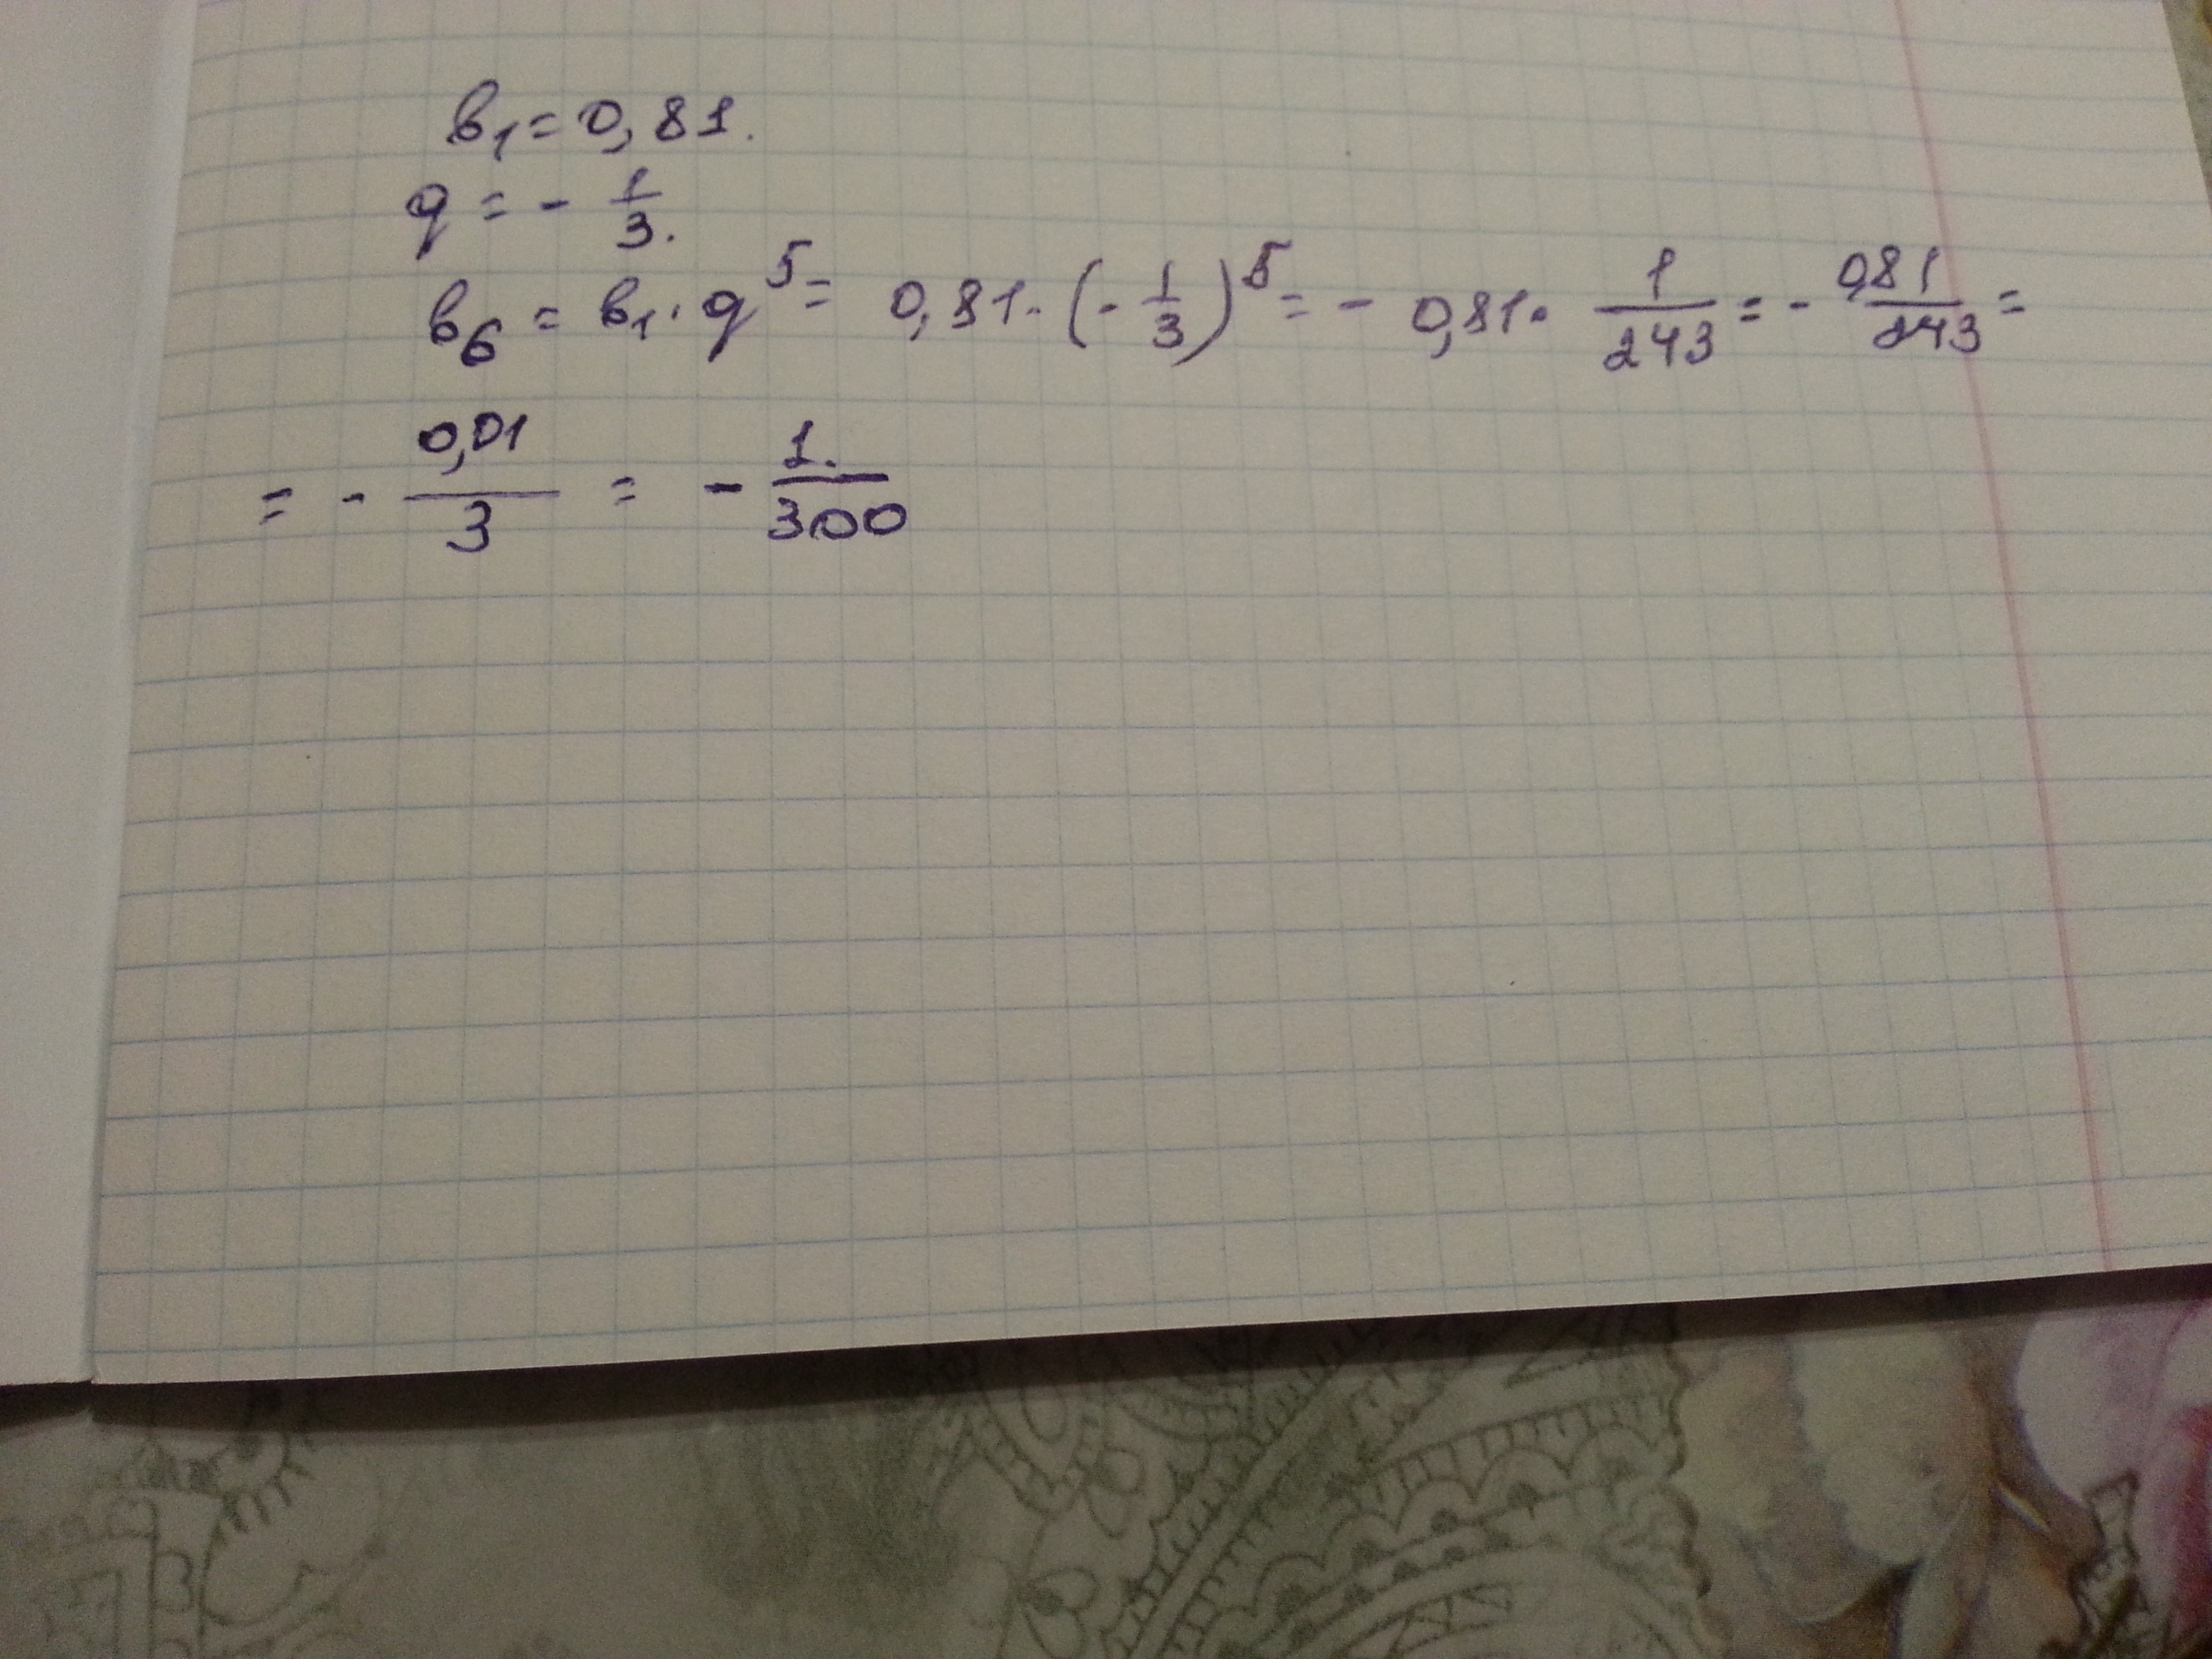 b₁ = 0,81.
q = - 1/3.
b₆ = b₁ · q⁵ = 0,81 · (- 1/3)⁵ = - 0,81 · 1/243 = - 0,81/243 =
= - 0,01/3 = - 1/300